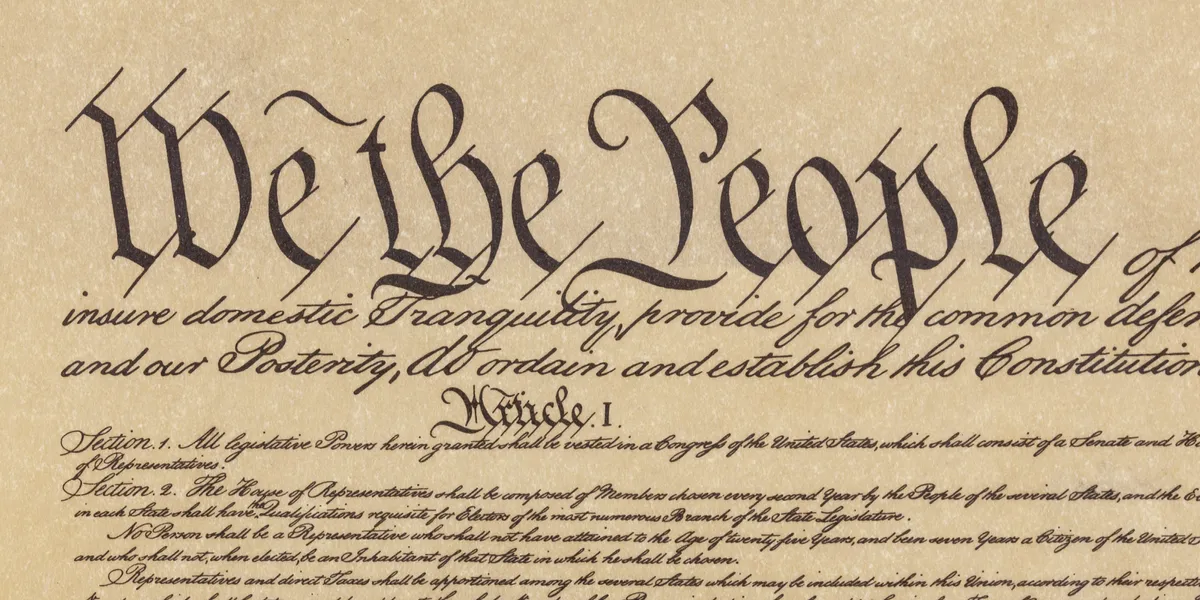 We the People of
insure domestic Tranquility, provide for the common defen
and our Posterity, do ordain and establish this Constitution
Article. I.
Section. 1. All legislative Powers herein granted shall be vested in a Congress of the United States, which shall consist of a Senate and
of Representatives.
Section. 2. The House of Representatives shall be composed of Members chosen every second Year by the People of the several States, and the
in each State shall have the Qualifications requisite for Electors of the most numerous Branch of the State Legislature.
No Person shall be a Representative who shall not have attained to the Age of twenty five Years, and been seven Years a Citizen of the United
and who shall not, when elected, be an Inhabitant of that State in which he shall be chosen.
Representatives and direct Taxes shall be apportioned among the several States which may be included within this Union, according to their